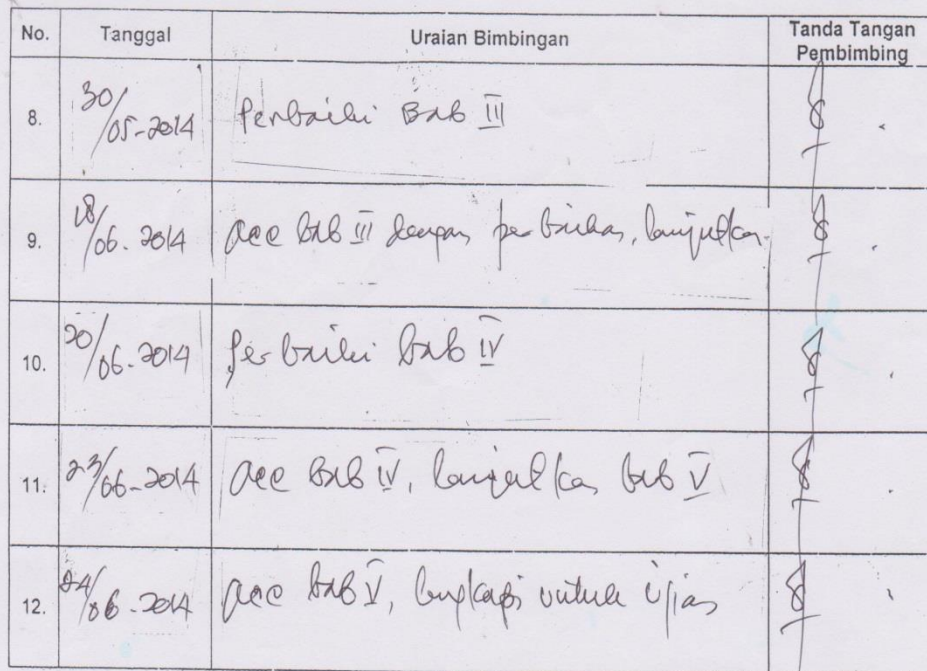 No. Tanggal Uraian Bimbingan Tanda Tangan
Pembimbing
8. 30/05-2014 Perbaiki Bab III
9. 18/06.2014 acc bab III dengan perbaikan, lanjutkan.
10. 20/06.2014 Perbaiki bab IV
11. 23/06-2014 acc bab IV, lanjutkan bab V
12. 24/06-2014 acc bab V, lengkapi untuk ujian